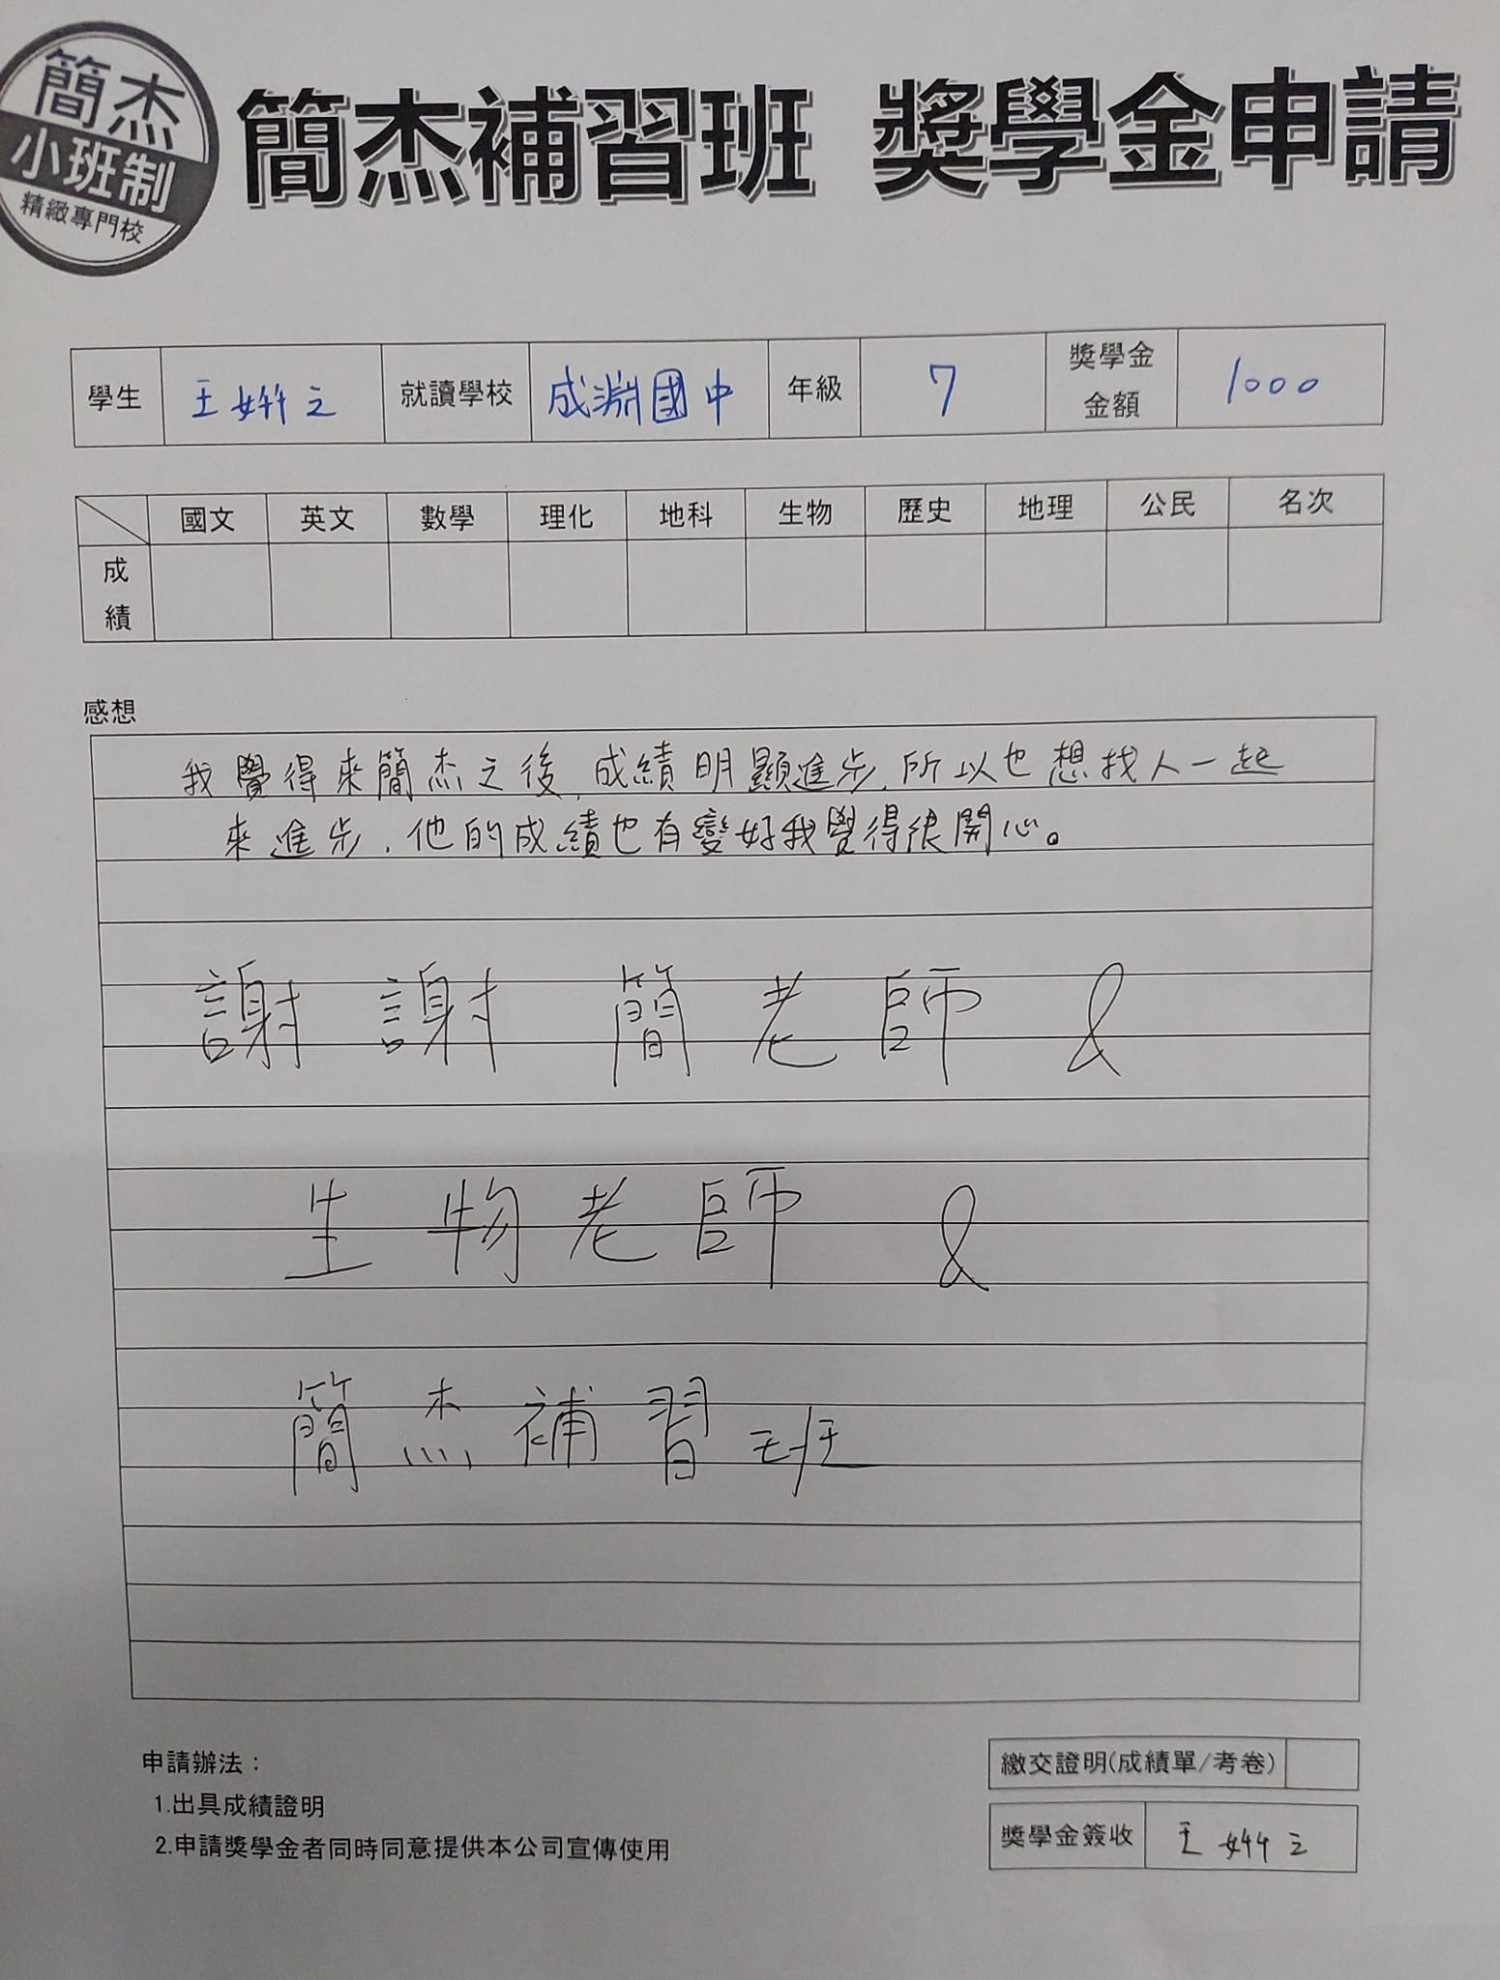 簡杰
小班制
精緻專門校
簡杰補習班 獎學金申請
學生 王姸之 就讀學校 成淵國中 年級 7 獎學金金額 1000
國文 英文 數學 理化 地科 生物 歷史 地理 公民 名次
成績
感想
我覺得來簡杰之後,成績明顯進步,所以也想找人一起
來進步,他的成績也有變好我覺得很開心。
謝謝 簡老師 &
生物老師 &
簡杰補習班
申請辦法：
1.出具成績證明
2.申請獎學金者同時同意提供本公司宣傳使用
繳交證明(成績單/考卷)
獎學金簽收 王姸之